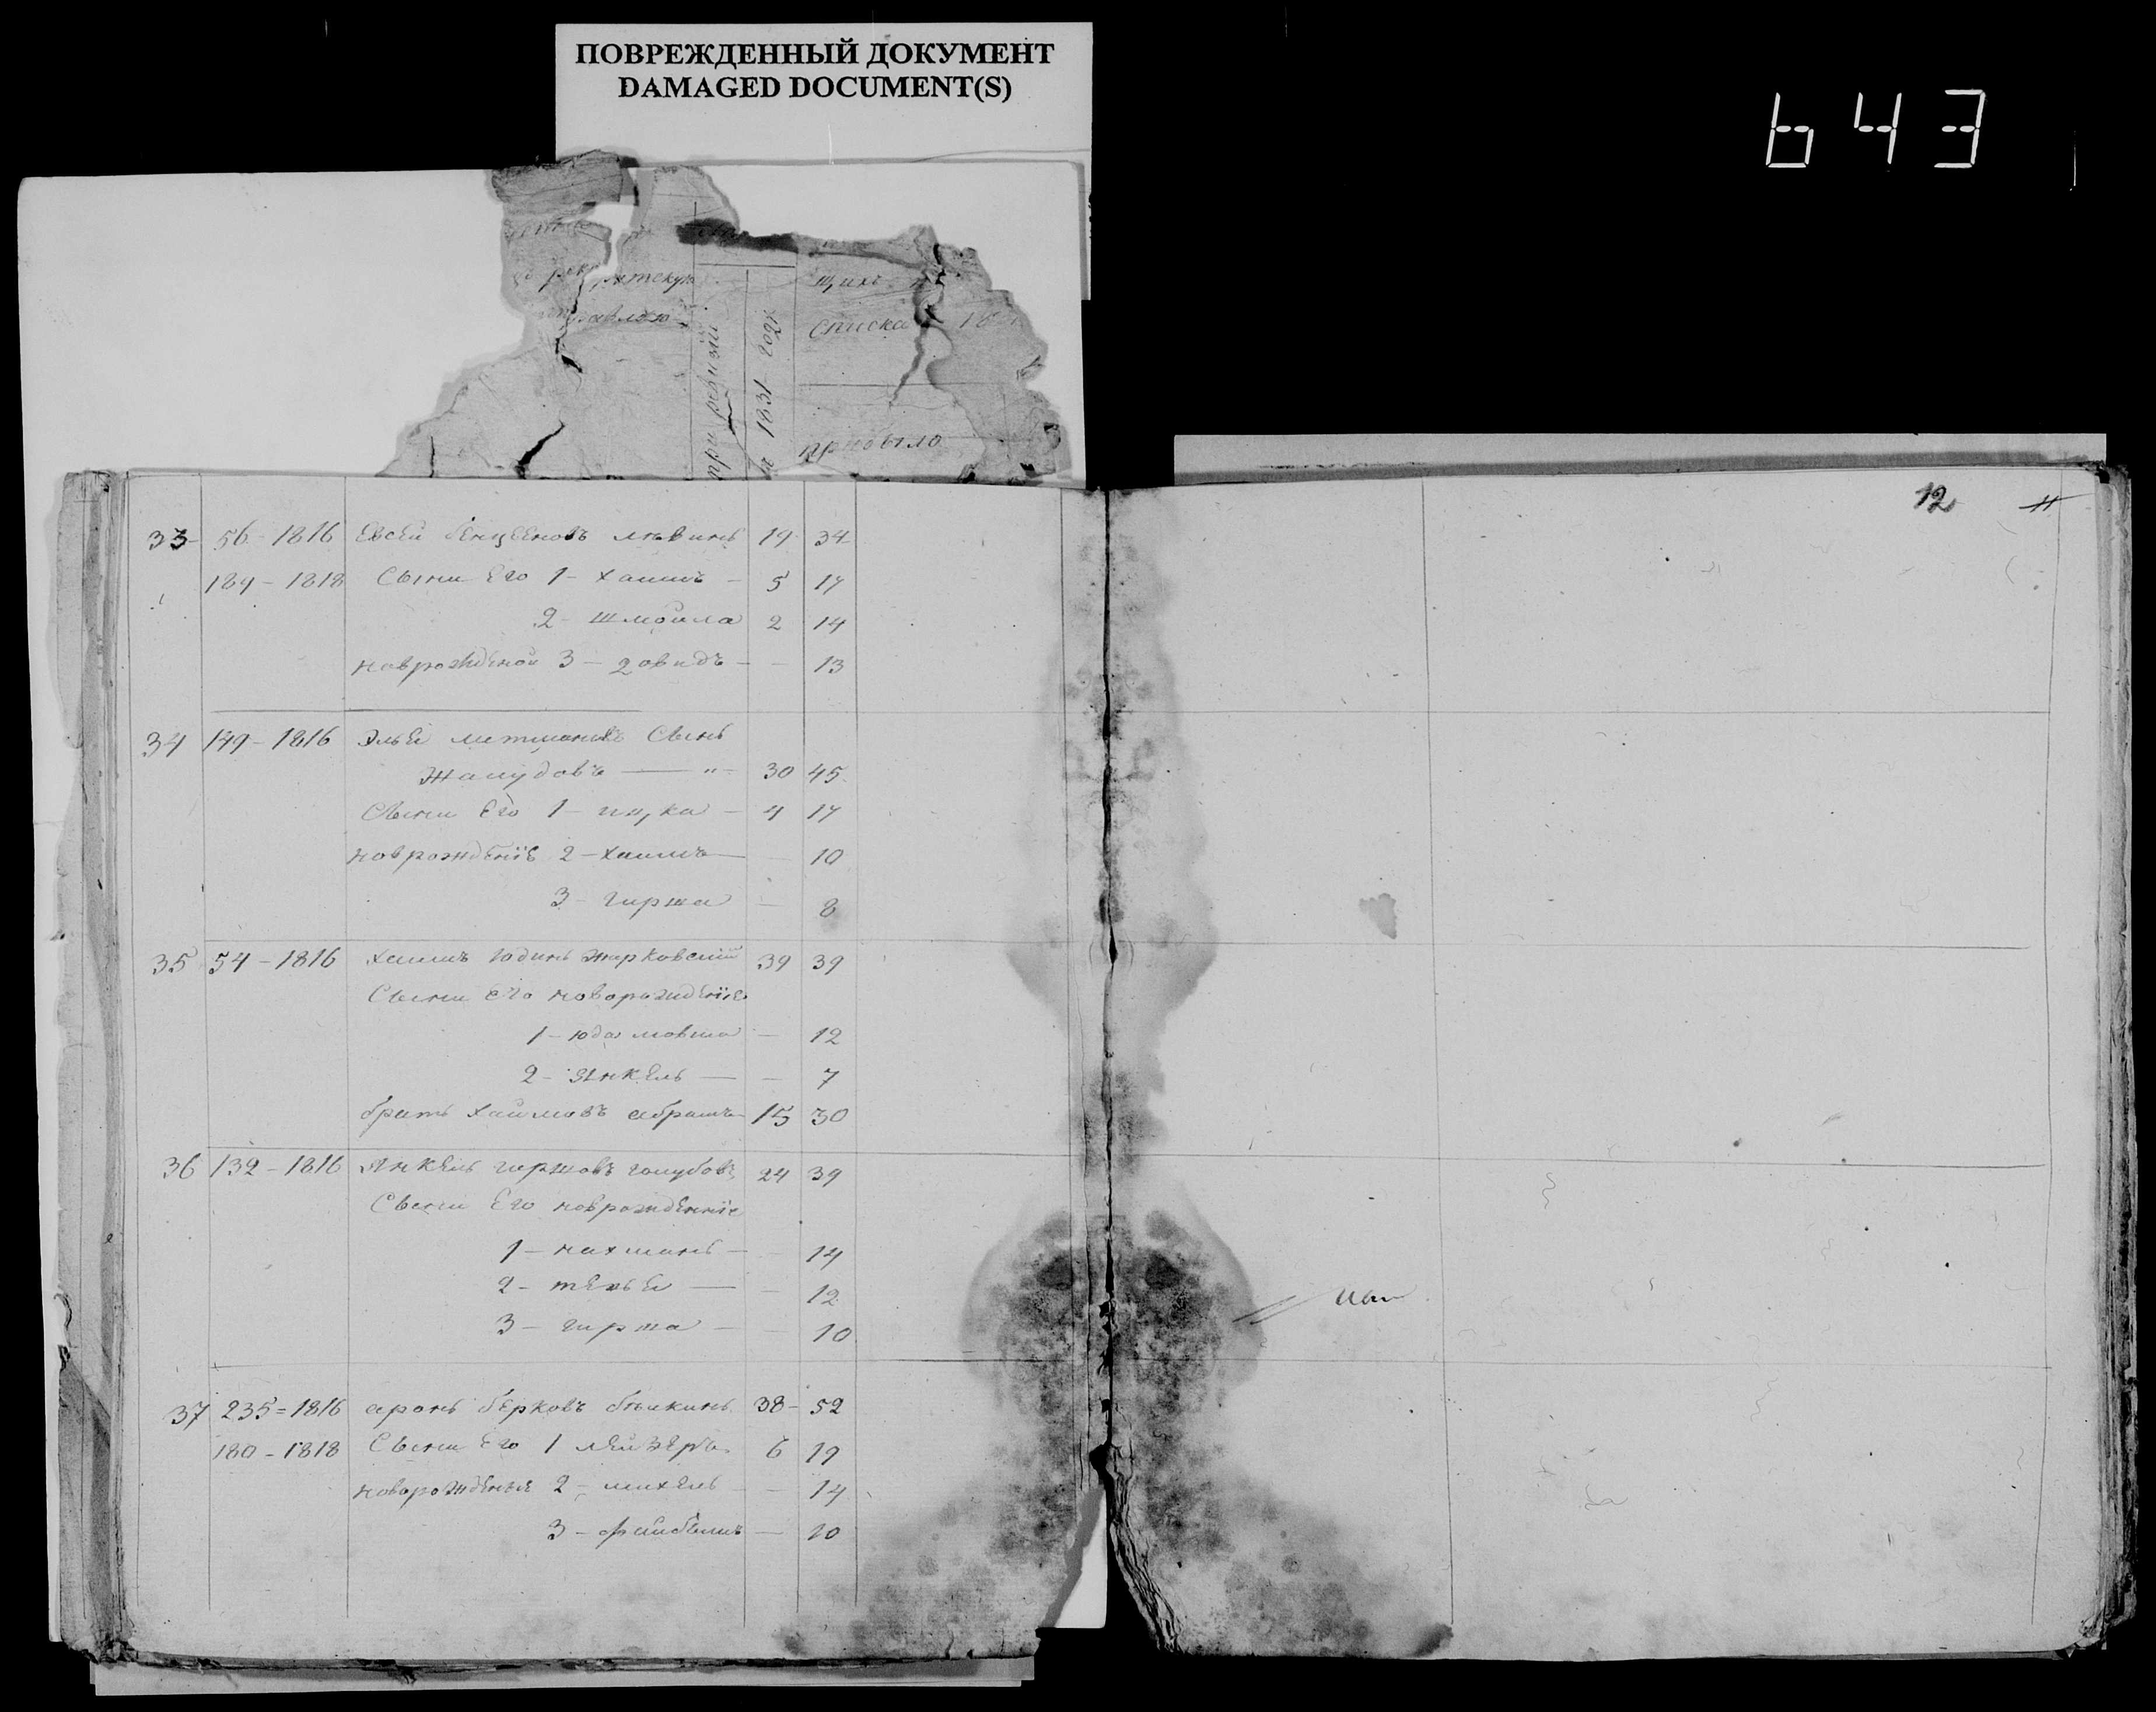 ПОВРЕЖДЕННЫЙ ДОКУМЕНТ
DAMAGED DOCUMENT(S)
643
щихъ
списка 18
при ревизіи
1831 годъ
прибыло
12
33 56-1816 Евсей бенценовъ левинъ 19 34
184-1818 Сыни Его 1- хаимъ - 5 17
2- шмойла 2 14
новрожденой 3- довидъ - - 13
34 149-1816 Элья Сынъ
30 45
Сыни Его 1- ицка - 4 17
новрожденіе 2- хаимъ 10
3- гирша - 8
35 54-1816 хаимъ юдинъ жарковскій 39 39
Сыни Его новорожденіе
1- юда мовша - 12
2- янкель - - 7
братъ хаимовъ абрамъ 15 30
36 132-1816 Янкель гиршовъ голубовъ 24 39
Сыни Его новрожденніе
1- нахманъ - 14
2- - 12
3- гирша - 10
37 235=1816 аронъ берковъ 38- 52
180-1818 Сыни Его 1 лейзеръ 6 19
новорожденые 2- михель - 14
3- файбишъ - 10